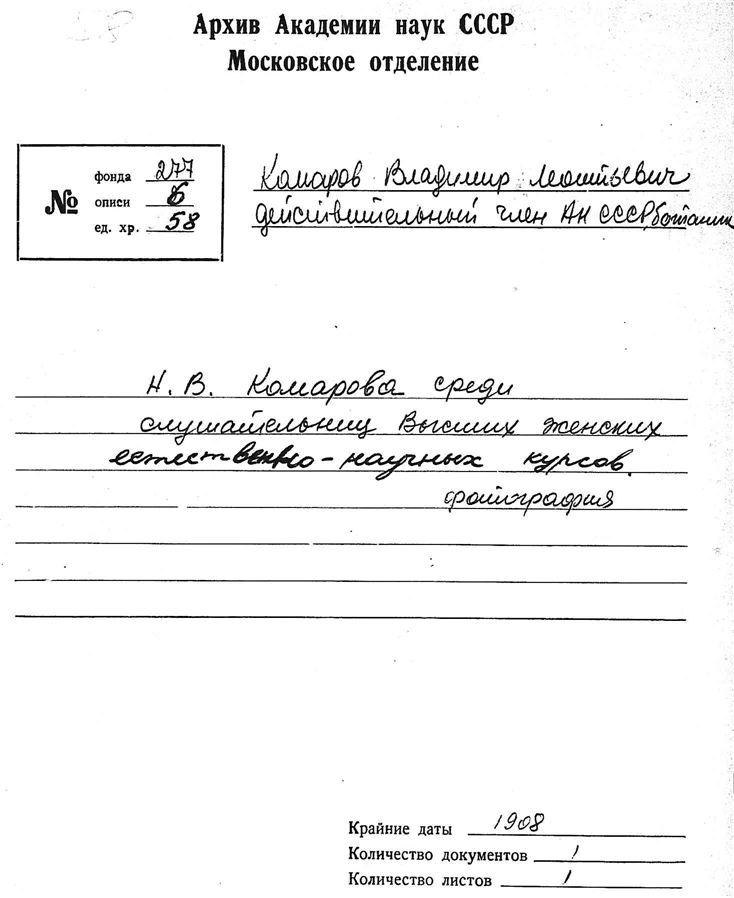 Архив Академии наук СССР
Московское отделение
№
фонда 277
описи 6
ед. хр. 58
Комаров Владимир Леонтьевич
действительный член АН СССР, ботаник
Н. В. Комарова среди
слушательниц Высших женских
естественно-научных курсов.
фотография
Крайние даты 1908
Количество документов 1
Количество листов 1